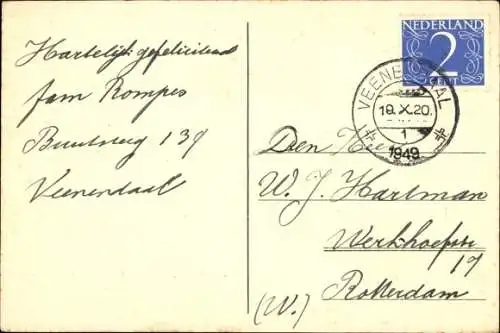 Hartelijk gefeliciteerd
fam Rompes
139
Veenendaal
NEDERLAND
2
CENT
VEENENDAAL
19.X.20.
1
1949
Den Heer
W. J. Hartman
Werkhoefstr
17
Rotterdam
(W.)